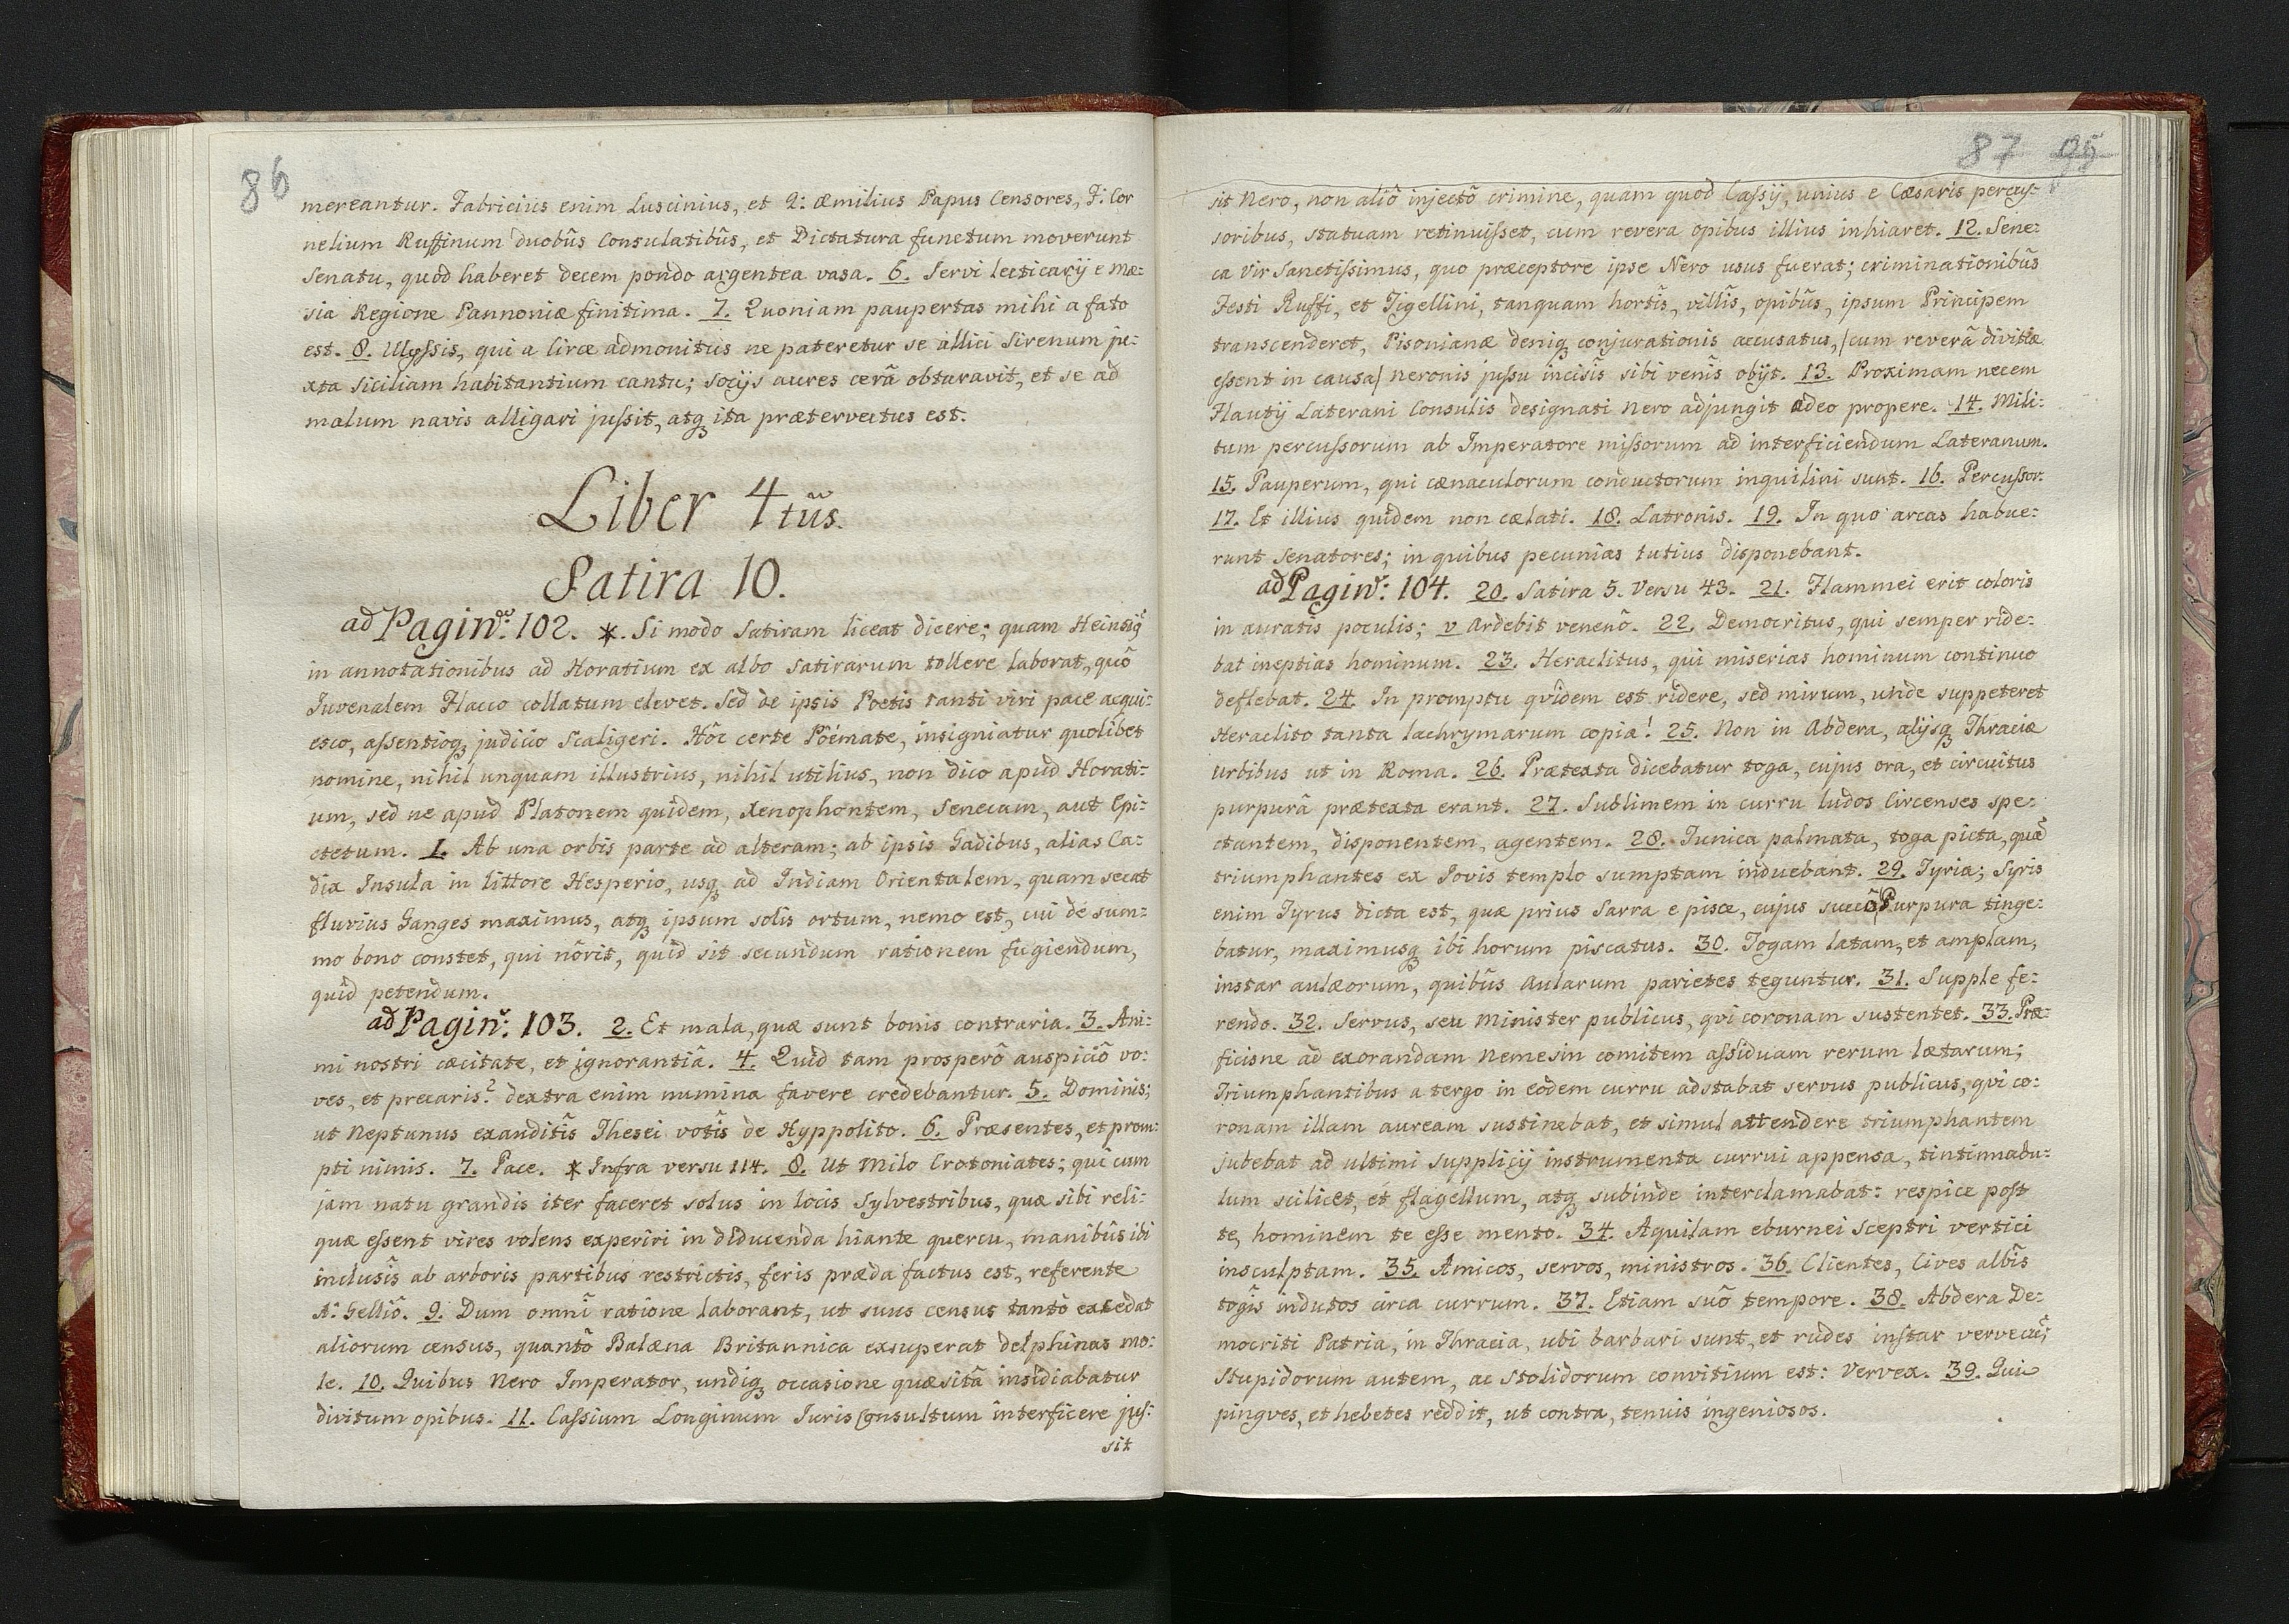 86
mereantur. Fabricius enim Luscinius, et Q: Æmilius Papus Censores, F: Cor
nelium Ruffinum duobûs Consulatibûs, et Dictatura functum moverunt
Senatu, quod haberet decem pondo argentea vasa. 6. Servi lecticarij e Mæ:
sia Regione Pannoniæ finitima. 7. Quoniam paupertas mihi a fato
est. 8. Ulyssis, qui a Circe admonitus ne pateretur se allici Sirenum ju:
xta Siciliam habitantium cantu; socijs aures cerâ obturavit, et se ad
malum navis alligari jussit, atq ita prætervectus est.
Liber 4tûs.
Satira 10.
ad Pagin: 102. *. Si modo Satiram liceat dicere; quam Heinsiy
in annotationibus ad Horatium ex albo Satirarum tollere laborat, quô
Juvenalem Flacco collatum elevet. Sed de ipsis Poetis tanti viri pace acqui:
esco, assentioq judicio Scaligeri. Hôc certe Pöémate, insigniatur quolibet
nomine, nihil unquam illustrius, nihil utilius, non dico apud Horati:
um, sed ne apud Platonem quidem, Xenophontem, Senecam, aut Epi:
ctetum. 1. Ab una orbis parte ad alteram; ab ipsis Gadibus, alias Ca:
dix Insula in littore Hesperio, usq ad Indiam Orientalem, quam secat
fluvius Ganges maximus, atq ipsum solis ortum, nemo est, cui de sum:
mo bono constet, qui nôrit, quid sit secundum rationem fugiendum,
quid petendum.
ad Pagin: 103. 2. Et mala, quæ sunt bonis contraria. 3. Ani:
mi nostri cæcitate, et ignorantiâ. 4. Quid tam prosperô auspiciô vo:
ves, et precaris? dextra enim numina favere credebantur. 5. Dominis;
ut Neptunus exauditîs Thesei votîs de Hyppolito. 6. Præsentes, et prom:
pti nimis. 7. Pace. * Infra versu 114. 8. Ut Milo Crotoniates; qui cum
jam natu grandis iter faceret solus in locis Sylvestribus, quæ sibi reli:
quæ essent vires volens experiri in diducenda hiante quercu, manibûs ibi
inclusîs ab arboris partibus restrictis, feris præda factus est, referente
A: Gelliô. 9. Dum omni ratione laborant, ut suus census tantò excedat
aliorum census, quantô Balæna Britannica exsuperat delphinas mo:
le. 10. Quibus Nero Imperator, undiq occasione quæsitâ insidiabatur
divitum opibus. 11. Cassium Longinum Juris Consultum interficere jus:
sit
87 95
sit Nero, non aliô injectô crimine, quam quod Cassij, unius e Cæsaris percus:
soribus, statuam retinuisset, cum revera opibus illius inhiaret. 12. Sene:
ca Vir Sanctissimus, quo præceptore ipse Nero usus fuerat; criminationibûs
Festi Ruffi, et Tigellini, tanquam hortîs, villîs, opibûs, ipsum Principem
transcenderet, Pisonianæ deniq conjurationis accusatus, /cum reverâ divitiæ
essent in causa/ Neronis jussu incisîs sibi venîs obijt. 13. Proximam necem
Plautij Laterani Consulis designati Nero adjungit adeo propere. 14. Mili:
tum percussorum ab Imperatore missorum ad interficiendum Lateranum.
15. Pauperum, qui cænaculorum conductorum inquilini sunt. 16. Percussor.
17. Et illius quidem non cælati. 18. Latronis. 19. In quo arcas habue:
runt Senatores; in quibus pecunias tutius disponebant.
ad Pagin: 104. 20. Satira 5. Versu 43. 21. Flammei erit coloris
in auratis poculis; v Ardebit venenô. 22. Democritus, qui semper ride:
bat ineptias hominum. 23. Heraclitus, qui miserias hominum continuo
deflebat. 24. In promptu qvidem est ridere, sed mirum, unde suppeteret
Heraclito tanta lachrymarum copia! 25. Non in Abdera, alijsq Thraciæ
Urbibus ut in Roma. 26. Prætexta dicebatur toga, cujus ora, et circuitus
purpurâ prætexta erant. 27. Sublimem in curru ludos Circenses spe:
ctantem, disponentem, agentem. 28. Tunica palmata, toga picta, quâ
triumphantes ex Jovis templo sumptam induebant. 29. Tyria; Syris
enim Tyrus dicta est, quæ prius Sarra e pisce, cujus succô Purpura tinge:
batur, maximusq ibi horum piscatus. 30. Togam latam, et amplam,
instar aulæorum, quibûs Aularum parietes teguntur. 31. Supple fe:
rendo. 32. Servus, seu Minister publicus, qvi coronam sustentet. 33. Præ:
ficisne ad exorandam Nemesin comitem assiduam rerum lætarum;
Triumphantibus a tergo in eodem curru adstabat servus publicus, qvi co:
ronam illam auream sustinebat, et simul attendere triumphantem
jubebat ad ultimi supplicij instrumenta currui appensa, tintinnabu:
lum scilicet, et flagellum, atq subinde interclamabat: respice post
te, hominem te esse mento. 34. Aquilam eburnei Sceptri vertici
insculptam. 35. Amicos, servos, ministros. 36. Clientes, Cives albîs
togîs indutos circa currum. 37. Etiam suô tempore. 38. Abdera De:
mocriti Patria, in Thracia, ubi barbari sunt, et rudes instar vervecû;
Stupidorum autem, ac Stolidorum convitium est: Vervex. 39. Qui
pingves, et hebetes reddit, ut contra, tenuis ingeniosos.